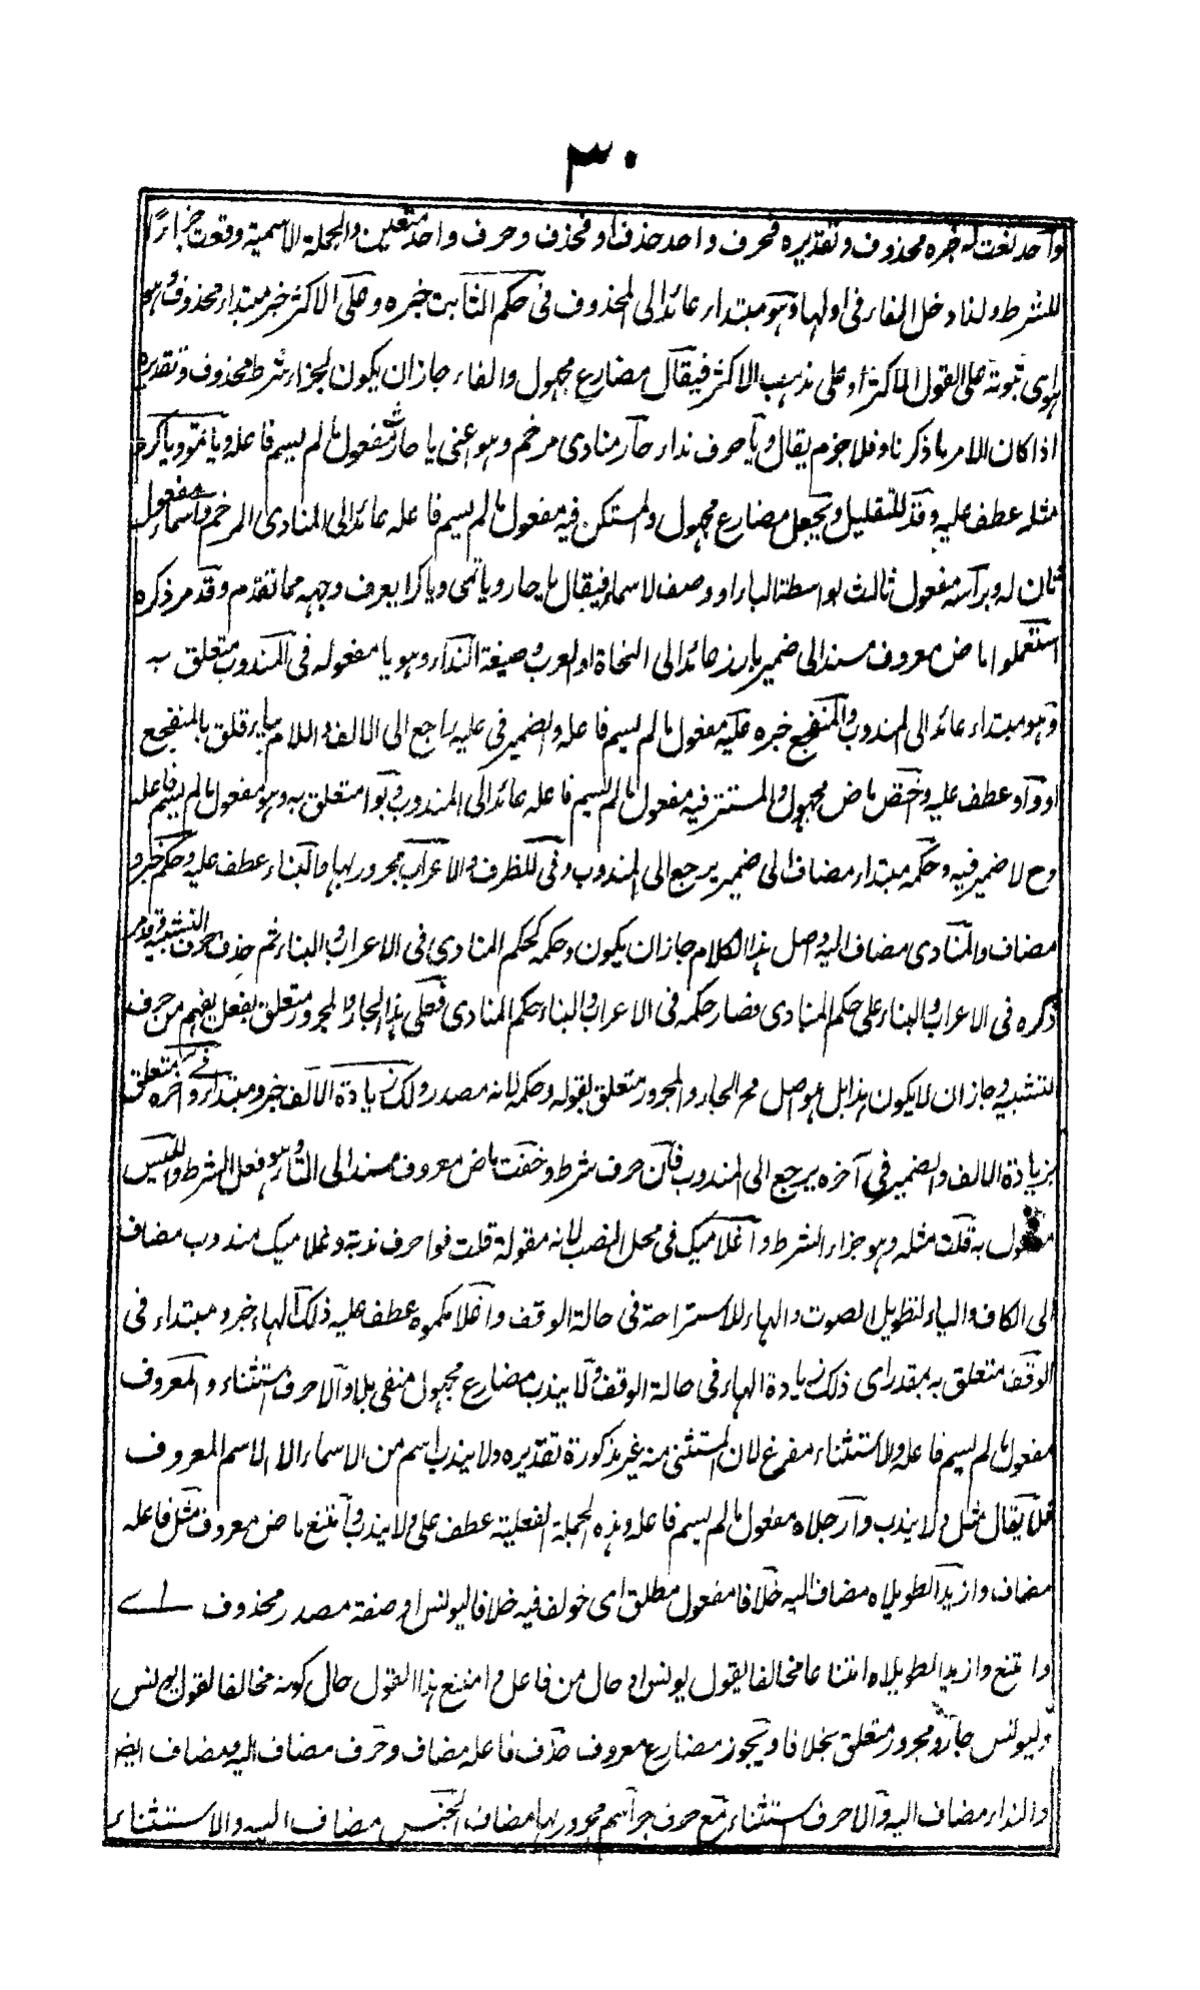 ٣٠
واحد نعت له خبره محذوف وتقديره فحرف واحد حذف او فحذف وحرف واحد متعلين والجملة الاسمية وقعت جزاءً
للشرط ولذا دخل الفاء فى اولها وهو مبتداء عائد الى المحذوف فى حكم الثابت خبره وعلى الاكثر خبر مبتداء محذوف وهو
هو اى ثبوته على القول الاكثر او على مذهب الاكثر فيقال مضارع مجهول والفاء جاز ان يكون لجزاء شرط محذوف وتقديره
اذا كان الامر ما ذكرناه فلا جزم يقال ويا حرف نداء حار منادى مرخم وهو اعنى يا حار مفعول ما لم يسم فاعله ويا ثمو ويا كرو
مثله عطف عليه وقد للتقليل ويجعل مضارع مجهول والمستكن فيه مفعول ما لم يسم فاعله عائد الى المنادى المرخم واسما مفعول
ثان له وبرأسه مفعول ثالث بواسطة الباء او وصف لاسما فيقال يا حار ويا ثمى ويا كرا يعرف وجهه مما تقدم وقد مر ذكره
استعملوا ماض معروف مسند الى ضمير بارز عائد الى النحاة او العرب وصيغة النداء وهو يا مفعوله فى المندوب متعلق به
وهو مبتداء عائد الى المندوب والمتفجع خبره عليه مفعول ما لم يسم فاعله والضمير فى عليه راجع الى الالف واللام بيا متعلق بالمتفجع
او وآو عطف عليه واختص ماض مجهول والمستتر فيه مفعول ما لم يسم فاعله عائد الى المندوب وبوا متعلق به وهو مفعول ما لم يسم فاعله
وح لا ضمير فيه وحكمه مبتداء مضاف الى ضمير يرجع الى المندوب وفى للظرف والاعراب مجرور بها والبناء عطف عليه وحكم خبره
مضاف والمنادى مضاف اليه واصل هذا الكلام جاز ان يكون وحكمه كحكم المنادى فى الاعراب والبناء ثم حذف حرف التشبيه وقدم
ذكره فى الاعراب والبناء على حكم المنادى فصار حكمه فى الاعراب والبناء حكم المنادى فعلى هذا الجار والمجرور متعلق بفعل يفهم من حرف
التشبيه وجاز ان لا يكون هذا بل هو اصل مح الجار والمجرور متعلق بقوله وحكمه لانه مصدر ولك زيادة الالف خبر ومبتداء وفى آخره متعلق
بزيادة الالف والضمير فى آخره يرجع الى المندوب فان حرف شرط وخفت ماض معروف مسند الى التاء وهو فعل الشرط واللبس
مفعول به قلت مثله وهو جزاء الشرط وآغلاميك فى محل النصب لانه مقولة قلت فوا حرف ندبة وغلاميك مندوب مضاف
الى الكاف والياء لتطويل الصوت والهاء للاستراحة فى حالة الوقف وآغلامكموه عطف عليه ذلك الهاء خبر ومبتداء فى
الوقف متعلق به بمقدر اى ذلك زيادة الهاء فى حالة الوقف ولا يندب مضارع مجهول منفى بلا والا حرف استثناء والمعروف
مفعول ما لم يسم فاعله والاستثناء مفرغ لان المستثنى منه غير مذكورة تقديره ولا يندب اسم من الاسماء الا الاسم المعروف
فلا يقال مثل ولا يندب وآرجلاه مفعول ما لم يسم فاعله وهذه الجملة الفعلية عطف على ولا يندب وامتنع ماض معروف مثل فاعله
مضاف وازيد الطويلاه مضاف اليه خلافا مفعول مطلق اى خولف فيه خلافا ليونس او صفة مصدر محذوف اے
وامتنع وازيد الطويلاه امتناعا مخالفا لقول يونس او حال من فاعل وامتنع هذا القول حال كونه مخالفا لقول يونس
وليونس جار ومجرور متعلق بخلافا ويجوز مضارع معروف حذف فاعله مضاف وحرف مضاف اليه ومضاف ايضا
والنداء مضاف اليه والا حرف استثناء مع حرف جر اسم مجرور بها مضاف الجنس مضاف اليه والاستثناء